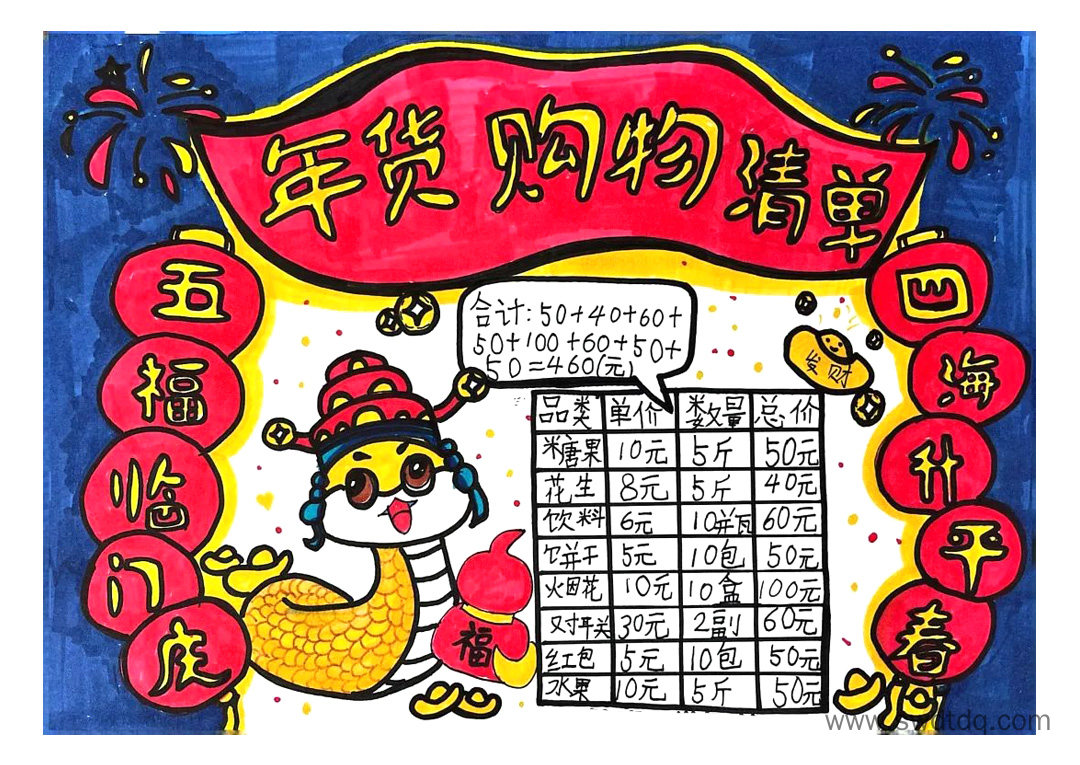 年货购物清单
五福临门虎
四海升平春
合计:50+40+60+
50+100+60+50+
50=460(元)
发财
福
品类 单价 数量 总价
糖果 10元 5斤 50元
花生 8元 5斤 40元
饮料 6元 10瓶 60元
饼干 5元 10包 50元
火烟花 10元 10盒 100元
对联 30元 2副 60元
红包 5元 10包 50元
水果 10元 5斤 50元
www.swdtdq.com